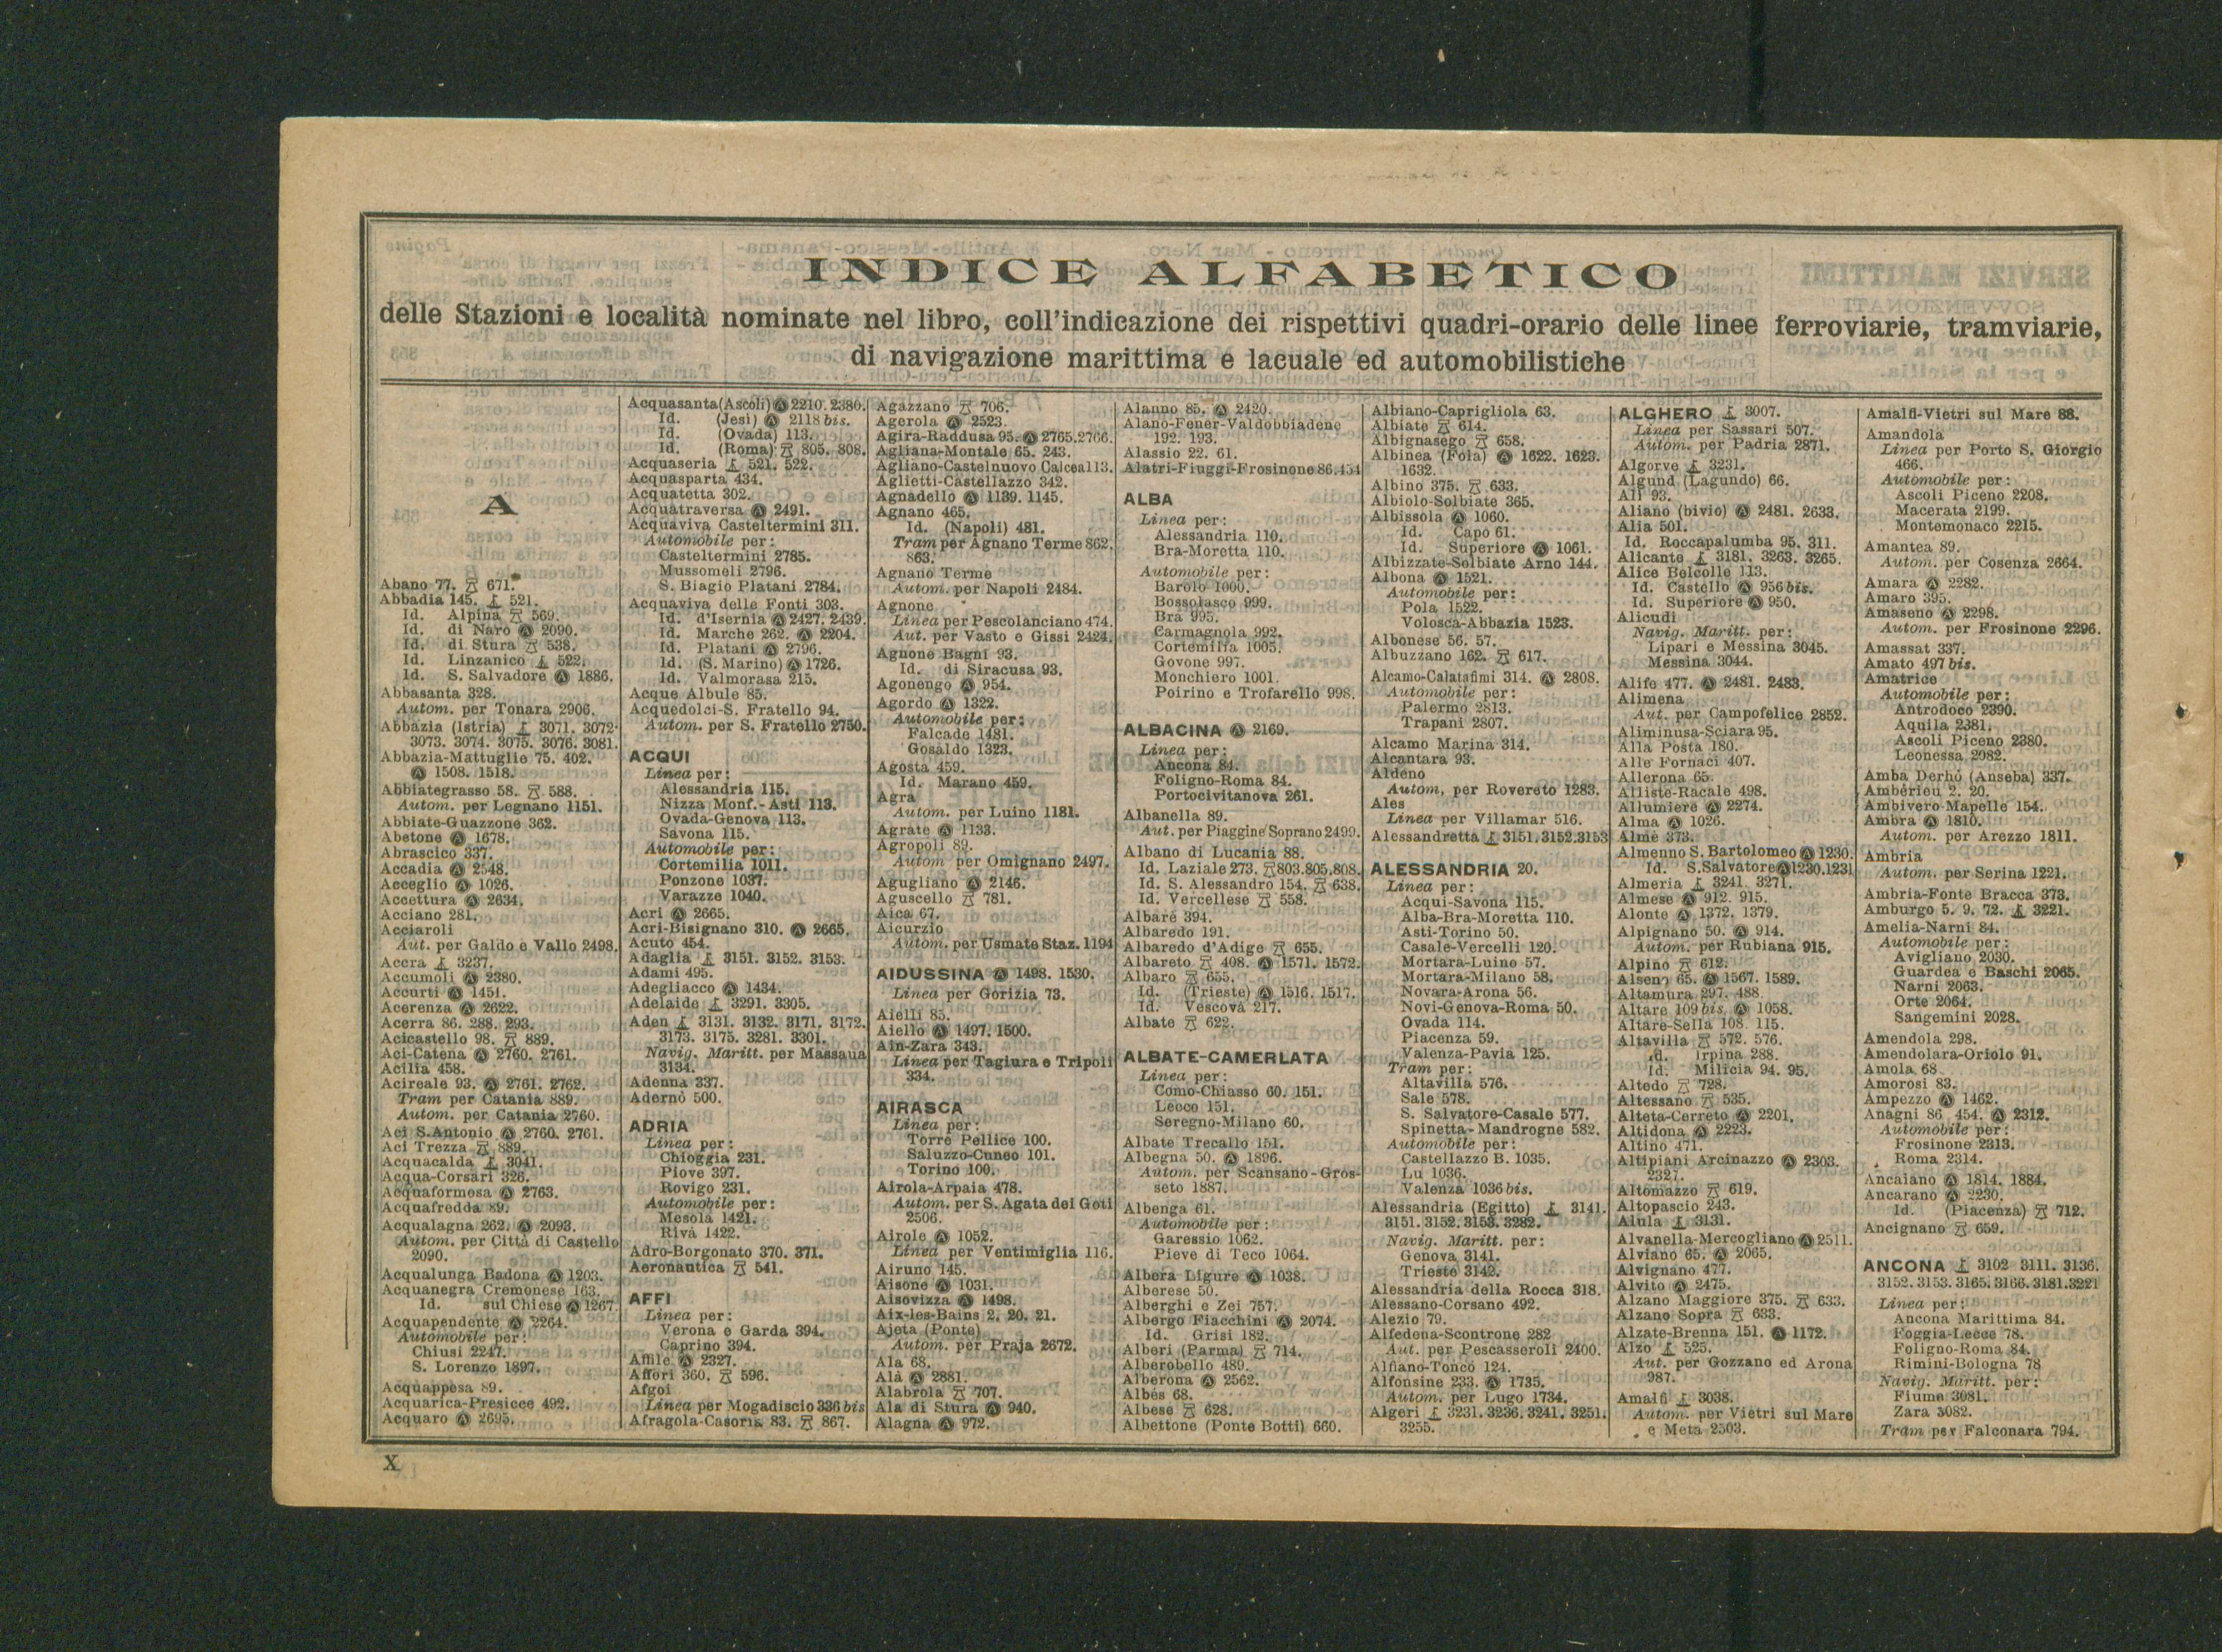 INDICE ALFABETICO
delle Stazioni e località nominate nel libro, coll'indicazione dei rispettivi quadri-orario delle linee ferroviarie, tramviarie,
di navigazione marittima e lacuale ed automobilistiche
A
Abano 77. 671.
Abbadia 145. 521.
Id. Alpina 569.
Id. di Naro 2090.
Id. di Stura 538.
Id. Linzanico 522.
Id. S. Salvadore 1886.
Abbasanta 328.
Autom. per Tonara 2906.
Abbazia (Istria) 3071. 3072.
3073. 3074. 3075. 3076. 3081.
Abbazia-Mattuglie 75. 402.
1508. 1518.
Abbiategrasso 58. 588.
Autom. per Legnano 1151.
Abbiate-Guazzone 362.
Abetone 1678.
Abrascico 337.
Accadia 2548.
Acceglio 1026.
Accettura 2634.
Acciano 281.
Acciaroli
Aut. per Galdo e Vallo 2498.
Accra 3237.
Accumoli 2380.
Accurti 1451.
Acerenza 2622.
Acerra 86. 288. 293.
Acicastello 98. 889.
Aci-Catena 2760. 2761.
Acilia 458.
Acireale 93. 2761. 2762.
Tram per Catania 889.
Autom. per Catania 2760.
Aci S.Antonio 2760. 2761.
Aci Trezza 889.
Acquacalda 3041.
Acqua-Corsari 326.
Acquaformosa 2763.
Acquafredda 89.
Acqualagna 262. 2093.
Autom. per Città di Castello
2090.
Acqualunga Badona 1203.
Acquanegra Cremonese 163.
Id. sul Chiese 1267.
Acquapendente 2264.
Automobile per:
Chiusi 2247.
S. Lorenzo 1897.
Acquappesa 89.
Acquarica-Presicce 492.
Acquaro 2695.
Acquasanta (Ascoli) 2210. 2380.
Id. (Jesi) 2118 bis.
Id. (Ovada) 113.
Id. (Roma) 805. 808.
Acquaseria 521. 522.
Acquasparta 434.
Acquatetta 302.
Acquatraversa 2491.
Acquaviva Casteltermini 311.
Automobile per:
Casteltermini 2785.
Mussomeli 2796.
S. Biagio Platani 2784.
Acquaviva delle Fonti 303.
Id. d'Isernia 2427. 2439.
Id. Marche 262. 2204.
Id. Platani 2796.
Id. (S. Marino) 1726.
Id. Valmorasa 215.
Acque Albule 85.
Acquedolci-S. Fratello 94.
Autom. per S. Fratello 2750.
ACQUI
Linea per:
Alessandria 115.
Nizza Monf.-Asti 113.
Ovada-Genova 113.
Savona 115.
Automobile per:
Cortemilia 1011.
Ponzone 1037.
Varazze 1040.
Acri 2665.
Acri-Bisignano 310. 2665.
Acuto 454.
Adaglia 3151. 3152. 3153.
Adami 495.
Adegliacco 1434.
Adelaide 3291. 3305.
Aden 3131. 3132. 3171. 3172.
3173. 3175. 3281. 3301.
Navig. Maritt. per Massaua
3134.
Adenna 337.
Adernò 500.
ADRIA
Linea per:
Chioggia 231.
Piove 397.
Rovigo 231.
Automobile per:
Mesola 1421.
Riva 1422.
Adro-Borgonato 370. 371.
Aeronautica 541.
AFFI
Linea per:
Verona e Garda 394.
Caprino 394.
Affile 2327.
Affori 360. 596.
Afgoi
Linea per Mogadiscio 336 bis
Afragola-Casoria 83. 867.
Agazzano 706.
Agerola 2523.
Agira-Raddusa 95. 2765.2766.
Agliana-Montale 65. 243.
Agliano-Castelnuovo Calcea 113.
Aglietti-Castellazzo 342.
Agnadello 1139. 1145.
Agnano 465.
Id. (Napoli) 481.
Tram per Agnano Terme 862.
863.
Agnano Terme
Autom. per Napoli 2484.
Agnone
Linea per Pescolanciano 474.
Aut. per Vasto e Gissi 2424.
Agnone Bagni 93.
Id. di Siracusa 93.
Agonengo 954.
Agordo 1322.
Automobile per:
Falcade 1481.
Gosaldo 1323.
Agosta 459.
Id. Marano 459.
Agra
Autom. per Luino 1181.
Agrate 1133.
Agropoli 89.
Autom per Omignano 2497.
Agugliano 2146.
Aguscello 781.
Aica 67.
Aicurzio
Autom. per Usmate Staz. 1194
AIDUSSINA 1498. 1530.
Linea per Gorizia 73.
Aielli 85.
Aiello 1497. 1500.
Ain-Zara 343.
Linea per Tagiura e Tripoli
334.
AIRASCA
Linea per:
Torre Pellice 100.
Saluzzo-Cuneo 101.
Torino 100.
Airola-Arpaia 478.
Autom. per S. Agata dei Goti
2506.
Airole 1052.
Linea per Ventimiglia 116.
Airuno 145.
Aisone 1031.
Aisovizza 1498.
Aix-les-Bains 2. 20. 21.
Ajeta (Ponte)
Autom. per Praja 2672.
Ala 68.
Alà 2881.
Alabrola 707.
Ala di Stura 940.
Alagna 972.
Alanno 85. 2420.
Alano-Fener-Valdobbiadene
192. 193.
Alassio 22. 61.
Alatri-Fiuggi-Frosinone 86.454
ALBA
Linea per:
Alessandria 110.
Bra-Moretta 110.
Automobile per:
Barolo 1000.
Bossolasco 999.
Bra 995.
Carmagnola 992.
Cortemilia 1005.
Govone 997.
Monchiero 1001.
Poirino e Trofarello 998.
ALBACINA 2169.
Linea per:
Ancona 84.
Foligno-Roma 84.
Portocivitanova 261.
Albanella 89.
Aut. per Piaggine Soprano 2499.
Albano di Lucania 88.
Id. Laziale 273. 803.805.808.
Id. S. Alessandro 154. 638.
Id. Vercellese 558.
Albarè 394.
Albaredo 191.
Albaredo d'Adige 655.
Albareto 408. 1571. 1572.
Albaro 655.
Id. (Trieste) 1516. 1517.
Id. Vescovà 217.
Albate 622.
ALBATE-CAMERLATA
Linea per:
Como-Chiasso 60. 151.
Lecco 151.
Seregno-Milano 60.
Albate Trecallo 151.
Albegna 50. 1896.
Autom. per Scansano-Gros-
seto 1887.
Albenga 61.
Automobile per:
Garessio 1062.
Pieve di Teco 1064.
Albera Ligure 1038.
Alberese 50.
Alberghi e Zei 757.
Albergo Fiacchini 2074.
Id. Grisi 182.
Alberi (Parma) 714.
Alberobello 489.
Alberona 2562.
Albés 68.
Albese 628.
Albettone (Ponte Botti) 660.
Albiano-Caprigliola 63.
Albiate 614.
Albignasego 658.
Albinea (Fola) 1622. 1623.
1632.
Albino 375. 633.
Albiolo-Solbiate 365.
Albissola 1060.
Id. Capo 61.
Id. Superiore 1061.
Albizzate-Solbiate Arno 144.
Albona 1521.
Automobile per:
Pola 1522.
Volosca-Abbazia 1523.
Albonese 56. 57.
Albuzzano 162. 617.
Alcamo-Calatafimi 314. 2808.
Automobile per:
Palermo 2813.
Trapani 2807.
Alcamo Marina 314.
Alcantara 93.
Aldeno
Autom, per Rovereto 1283.
Ales
Linea per Villamar 516.
Alessandretta 3151.3152.3153
ALESSANDRIA 20.
Linea per:
Acqui-Savona 115.
Alba-Bra-Moretta 110.
Asti-Torino 50.
Casale-Vercelli 120.
Mortara-Luino 57.
Mortara-Milano 58.
Novara-Arona 56.
Novi-Genova-Roma 50.
Ovada 114.
Piacenza 59.
Valenza-Pavia 125.
Tram per:
Altavilla 576.
Sale 578.
S. Salvatore-Casale 577.
Spinetta-Mandrogne 582.
Automobile per:
Castellazzo B. 1035.
Lu 1036.
Valenza 1036 bis.
Alessandria (Egitto) 3141.
3151. 3152. 3153. 3282.
Navig. Maritt. per:
Genova 3141.
Trieste 3142.
Alessandria della Rocca 318.
Alessano-Corsano 492.
Alezio 79.
Alfedena-Scontrone 282
Aut. per Pescasseroli 2400.
Alfiano-Tonco 124.
Alfonsine 233. 1735.
Autom. per Lugo 1734.
Algeri 3231. 3236. 3241. 3251.
3255.
ALGHERO 3007.
Linea per Sassari 507.
Autom. per Padria 2871.
Algorve 3231.
Algund (Lagundo) 66.
Alì 93.
Aliano (bivio) 2481. 2633.
Alia 501.
Id. Roccapalumba 95. 311.
Alicante 3181. 3263. 3265.
Alice Belcolle 113.
Id. Castello 956 bis.
Id. Superiore 950.
Alicudi
Navig. Maritt. per:
Lipari e Messina 3045.
Messina 3044.
Alife 477. 2481. 2483.
Alimena
Aut. per Campofelice 2852.
Aliminusa-Sciara 95.
Alla Posta 180.
Alle Fornaci 407.
Allerona 65.
Alliste-Racale 498.
Allumiere 2274.
Alma 1026.
Almè 373.
Almenno S. Bartolomeo 1230.
Id. S. Salvatore 1230.1231
Almeria 3241. 3271.
Almese 912. 915.
Alonte 1372. 1379.
Alpignano 50. 914.
Autom. per Rubiana 915.
Alpino 612.
Alseno 65. 1567. 1589.
Altamura 297. 488.
Altare 109 bis. 1058.
Altare-Sella 108. 115.
Altavilla 572. 576.
Id. Irpina 288.
Id. Milicia 94. 95.
Altedo 728.
Altessano 535.
Alteta-Cerreto 2201.
Altidona 2223.
Altino 471.
Altipiani Arcinazzo 2303.
2327.
Altomazzo 619.
Altopascio 243.
Alula 3131.
Alvanella-Mercogliano 2511.
Alviano 65. 2065.
Alvignano 477.
Alvito 2475.
Alzano Maggiore 375. 633.
Alzano Sopra 633.
Alzate-Brenna 151. 1172.
Alzo 525.
Aut. per Gozzano ed Arona
987.
Amalfi 3038.
Autom. per Vietri sul Mare
e Meta 2503.
Amalfi-Vietri sul Mare 88.
Amandola
Linea per Porto S. Giorgio
466.
Automobile per:
Ascoli Piceno 2208.
Macerata 2199.
Montemonaco 2215.
Amantea 89.
Autom. per Cosenza 2664.
Amara 2282.
Amaro 395.
Amaseno 2298.
Autom. per Frosinone 2296.
Amassat 337.
Amato 497 bis.
Amatrice
Automobile per:
Antrodoco 2390.
Aquila 2381.
Ascoli Piceno 2380.
Leonessa 2082.
Amba Derhò (Anseba) 337.
Ambérieu 2. 20.
Ambivero-Mapello 154.
Ambra 1810.
Autom. per Arezzo 1811.
Ambria
Autom. per Serina 1221.
Ambria-Fonte Bracca 373.
Amburgo 5. 9. 72. 3221.
Amelia-Narni 84.
Automobile per:
Avigliano 2030.
Guardea e Baschi 2065.
Narni 2063.
Orte 2064.
Sangemini 2028.
Amendola 298.
Amendolara-Oriolo 91.
Amola 68
Amorosi 83.
Ampezzo 1462.
Anagni 86 454. 2312.
Automobile per:
Frosinone 2313.
Roma 2314.
Ancaiano 1814. 1884.
Ancarano 2230.
Id. (Piacenza) 712.
Ancignano 659.
ANCONA 3102 3111. 3136.
3152. 3153. 3165. 3166. 3181.3221
Linea per:
Ancona Marittima 84.
Foggia-Lecce 78.
Foligno-Roma 84.
Rimini-Bologna 78
Navig. Maritt. per:
Fiume 3081.
Zara 3082.
Tram per Falconara 794.
X